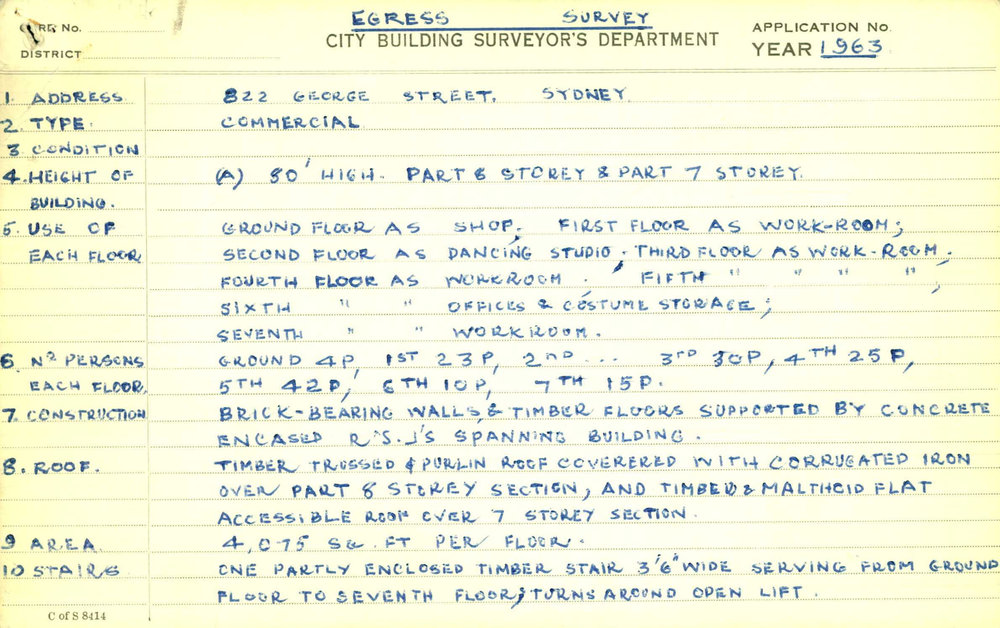 EGRESS SURVEY
CARD No.
CITY BUILDING SURVEYOR'S DEPARTMENT
APPLICATION No.
DISTRICT
YEAR 1963
1. ADDRESS 822 GEORGE STREET. SYDNEY
2. TYPE. COMMERCIAL
3 CONDITION
4. HEIGHT OF (A) 80' HIGH. PART 8 STOREY & PART 7 STOREY.
BUILDING.
5. USE OF GROUND FLOOR AS SHOP. FIRST FLOOR AS WORK-ROOM;
EACH FLOOR SECOND FLOOR AS DANCING STUDIO. THIRD FLOOR AS WORK-ROOM.
FOURTH FLOOR AS WORKROOM. FIFTH " " " " ;
SIXTH " " OFFICES & COSTUME STORAGE;
SEVENTH " " WORKROOM.
6. Nº PERSONS GROUND 4P, 1ST 23P, 2ND ... 3RD 30P, 4TH 25P,
EACH FLOOR. 5TH 42P, 6TH 10P, 7TH 15P.
7. CONSTRUCTION BRICK-BEARING WALLS & TIMBER FLOORS SUPPORTED BY CONCRETE
ENCASED R.S.J'S SPANNING BUILDING.
8. ROOF. TIMBER TRUSSED & PURLIN ROOF COVERERED WITH CORRUGATED IRON
OVER PART 8 STOREY SECTION, AND TIMBER & MALTHOID FLAT
ACCESSIBLE ROOF OVER 7 STOREY SECTION.
9 AREA 4,075 SQ. FT PER FLOOR.
10 STAIRS ONE PARTLY ENCLOSED TIMBER STAIR 3'6" WIDE SERVING FROM GROUND
FLOOR TO SEVENTH FLOOR; TURNS AROUND OPEN LIFT.
C of S 8414